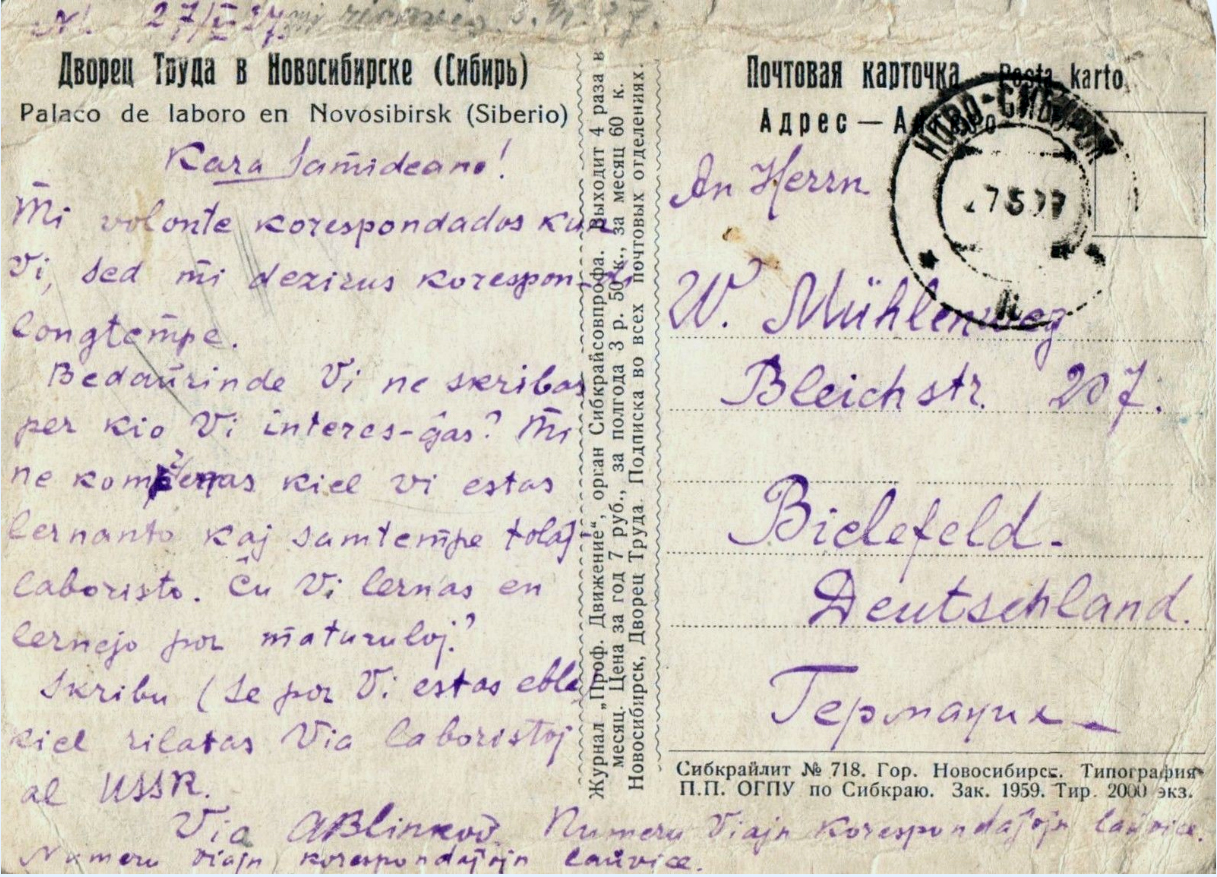 27/V 27 mi ricevis
Дворец Труда в Новосибирске (Сибирь)
Palaco de laboro en Novosibirsk (Siberio)
Kara Samideano!
Mi volonte korespondados kun
Vi, sed mi dezirus korespon-di
longtempe.
Bedaŭrinde Vi ne skribas
per kio Vi interes-ĝas? Mi
ne komprenas kiel vi estas
lernanto kaj samtempe
laboristo. Ĉu Vi lernas en
lernejo por maturuloj?
Skribu (se por Vi estas eble
kiel rilatas Via laboristoj
al USSR.
Via ABlinkov. Numeru Viajn korespondaĵojn laŭvice.
Numeru viajn korespondaĵojn laŭvice.
Журнал „Проф. Движение“, орган Сибкрайсовпрофа. Выходит 4 раза в
месяц. Цена за год 7 руб., за полгода 3 р. 50 к., за месяц 60 к.
Новосибирск, Дворец Труда. Подписка во всех почтовых отделениях.
Почтовая карточка Poŝta karto
Адрес —
НОВО-СИБИРСК
27 5 27
An Herrn
W. Mühlenweg
Bleichstr. 207.
Bielefeld-
Deutschland.
Германия
Сибкрайлит № 718. Гор. Новосибирск. Типография
П.П. ОГПУ по Сибкраю. Зак. 1959. Тир. 2000 экз.